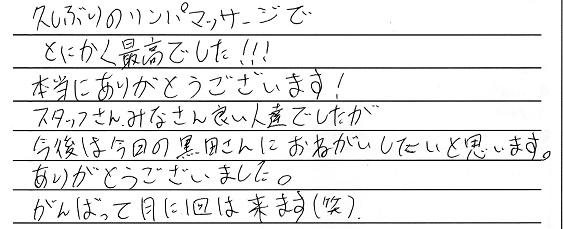 久しぶりのリンパマッサージで
とにかく最高でした!!!
本当にありがとうございます!
スタッフさんみなさん良い人達でしたが
今後は今回の黒田さんにおねがいしたいと思います。
ありがとうございました。
がんばって月に1回は来ます(笑).